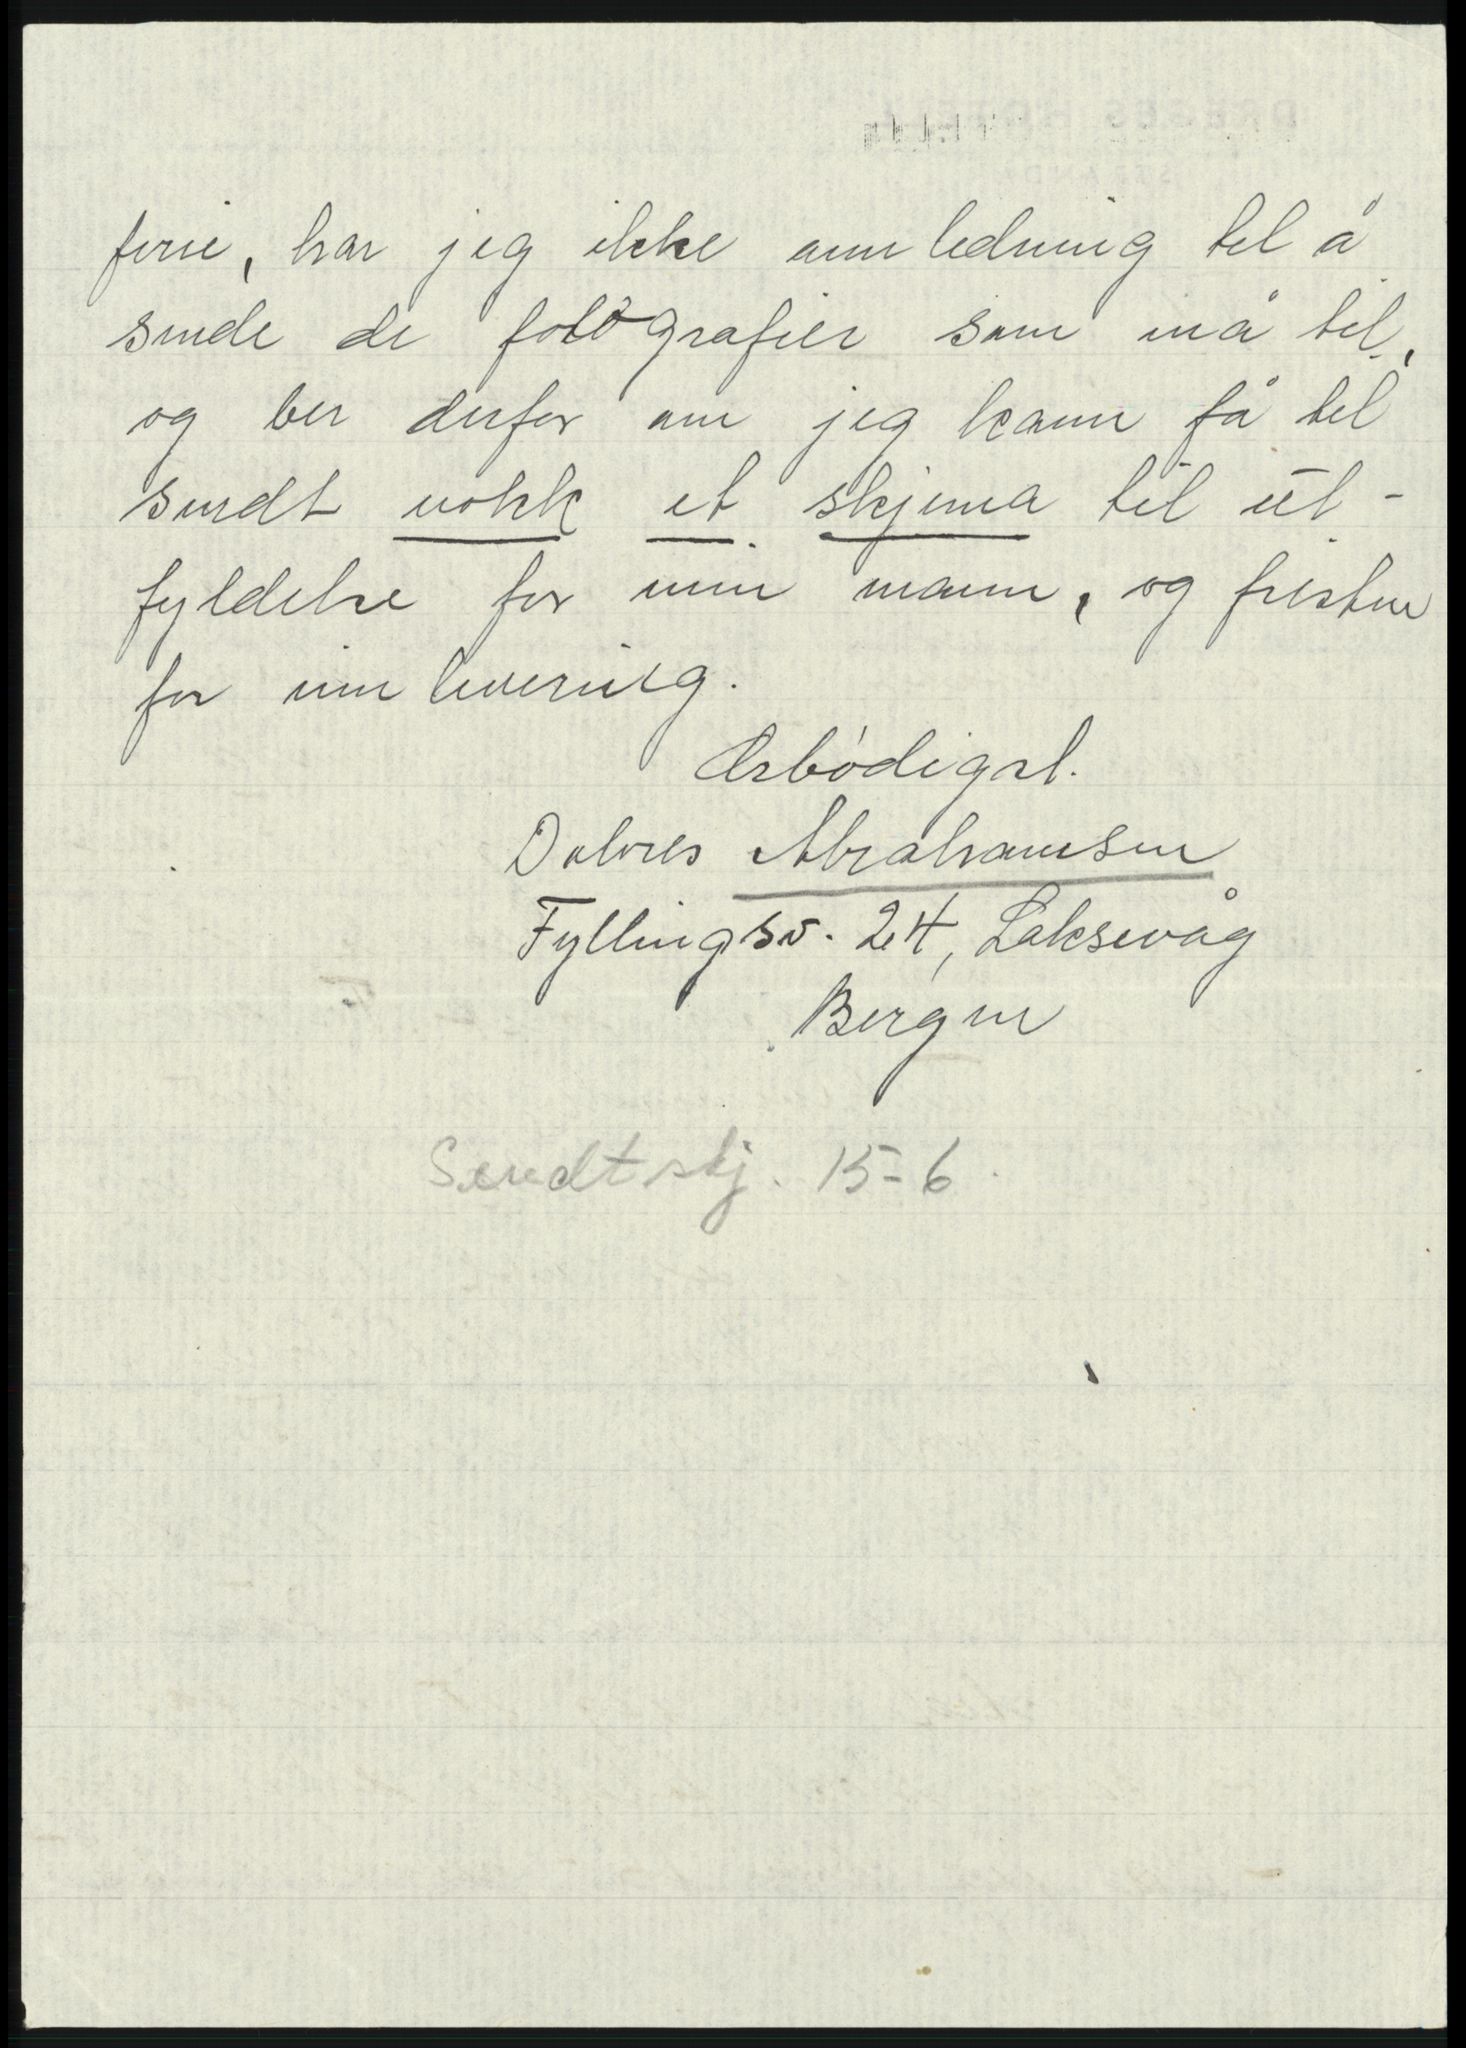 ferie, har jeg ikke annledning til å
sende de fotografier som må til,
og ber derfor om jeg kann få til
sendt nokk et skjema til ut-
fyldelse for min mann, og fristen
for innlevering.
Ærbödigst.
Dolores Abrahamsen
Fyllingsv. 24, Laksevåg
Bergen
Sendt skj. 15-6.